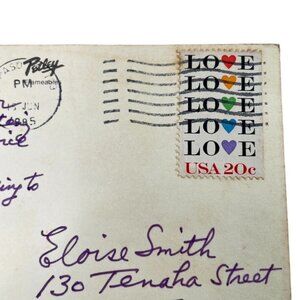 PASO
Pixley
PM
JUN
1985
ing to
LOVE
LOVE
LOVE
LOVE
LOVE
USA 20c
Eloise Smith
130 Tenaha Street